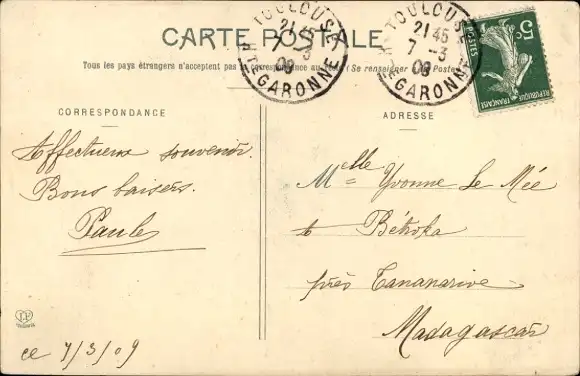 CARTE POSTALE
Tous les pays étrangers n'acceptent pas la correspondance au (Se renseigner
TOULOUSE
21 45
7 -3
09
HTE GARONNE
TOULOUSE
21 45
7 -3
09
HTE GARONNE
POSTES
5
REPUBLIQUE FRANÇAISE
CORRESPONDANCE
ADRESSE
Affectueux souvenir.
Bons baisers.
Paule
ce 7/3/09
Melle Yvonne Le Mée
à Bétioka
près Tananarive
Madagascar